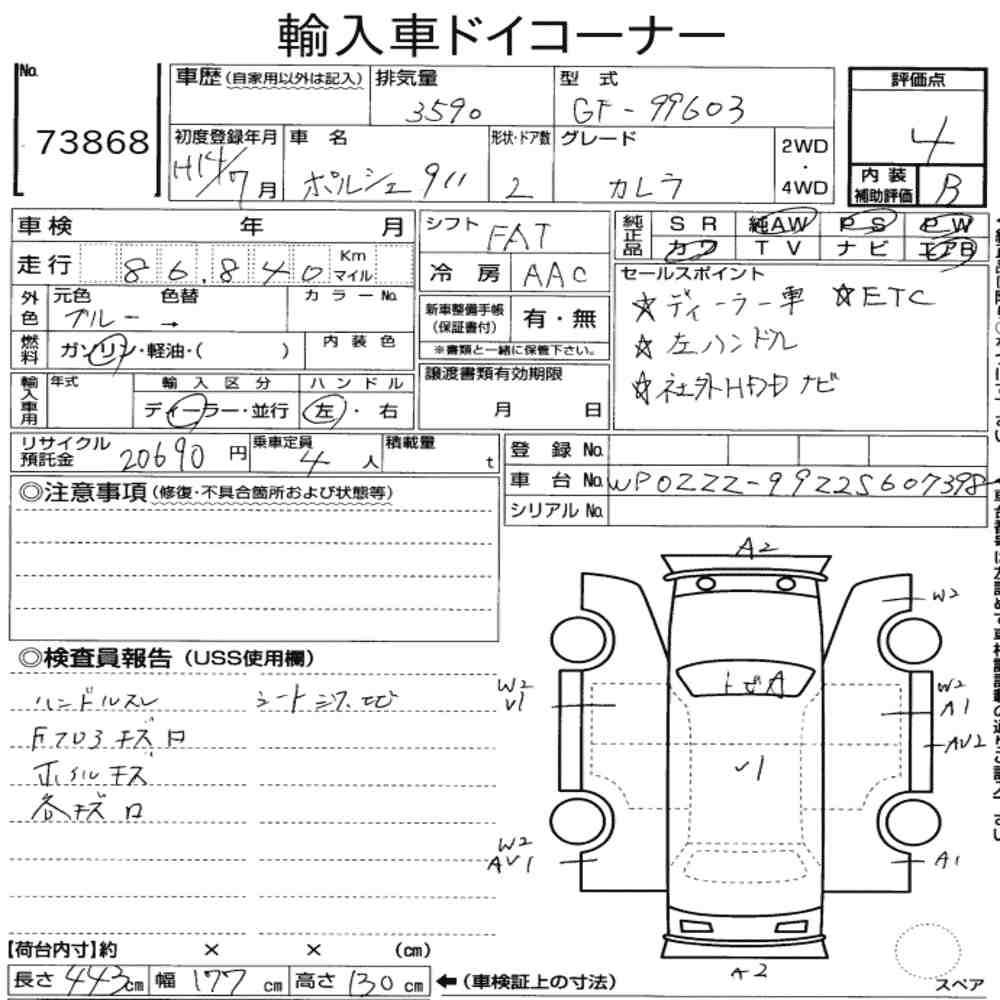 輸入車ドイコーナー
No. 73868
車歴 (自家用以外は記入) 排気量 3590 型 式 GF-99603 評価点 4
初度登録年月 H14/7月 車 名 ポルシェ 911 形状・ドア数 2 グレード カレラ 2WD・4WD 内装補助評価 B
車検 年 月 シフト FAT 純正品 SR 純AW PS PW
カワ TV ナビ エアB
走行 86.840 Km マイル 冷 房 AAC セールスポイント
外色 元色 色替 カラーNo. ☆ディーラー車 ☆ETC
ブルー → 新車整備手帳 (保証書付) 有・無
☆左ハンドル
燃料 ガソリン・軽油・( ) 内装色 ※書類と一緒に保管下さい。
☆社外HDDナビ
輸入車用 年式 輸入区分 ハンドル 譲渡書類有効期限
ディーラー・並行 左・右 月 日
リサイクル預託金 20690 円 乗車定員 4 人 積載量 t 登 録 No.
車 台 No. WP0ZZZ-99Z2S607398
◎注意事項 (修復・不具合箇所および状態等) シリアル No.
A2
W2
◎検査員報告 (USS使用欄)
ハンドルスレ シートシワ.
W2 V1
トビA
W2 A1
AV2
V1
ホイルキズ
各キズ
W2 AV1
A1
【荷台内寸】約 × × (cm)
長さ 443 cm 幅 177 cm 高さ 130 cm ←(車検証上の寸法)
A2
スペア